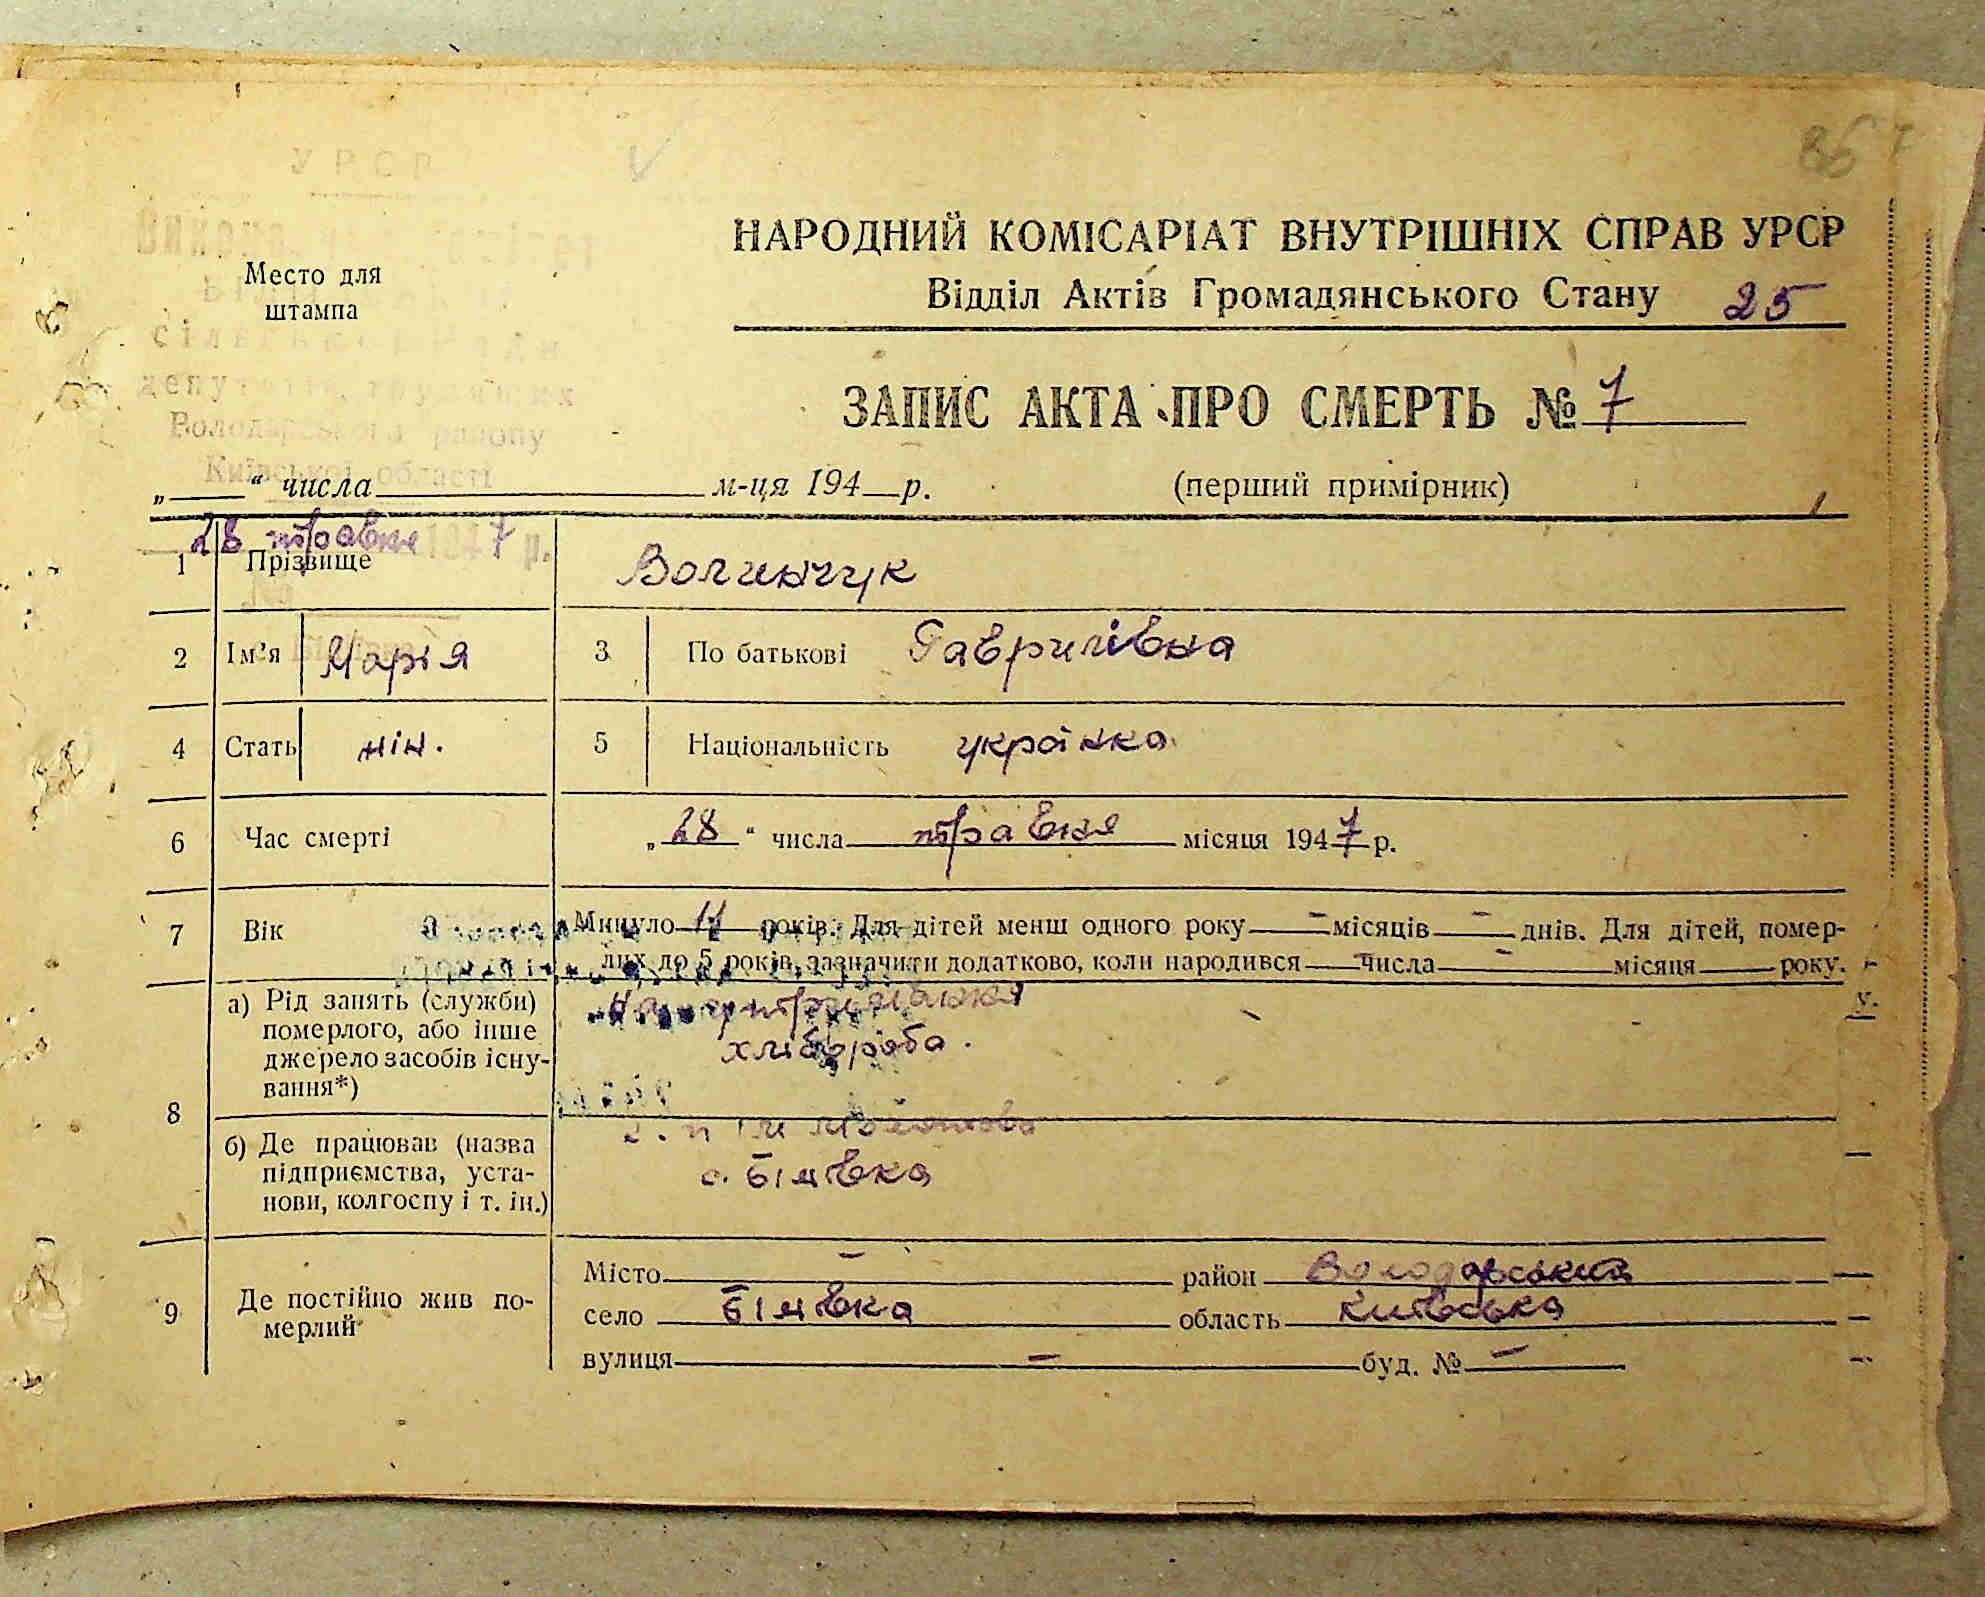 УРСР
НАРОДНИЙ КОМІСАРІАТ ВНУТРІШНІХ СПРАВ УРСР
Відділ Актів Громадянського Стану 25
Место для
штампа
депутатів трудящих
Володарського району
Київської області
ЗАПИС АКТА ПРО СМЕРТЬ № 7
„ “ числа м-ця 194 р. (перший примірник)
28 травня 1947 р.
1 Прізвище Волинчук
2 Ім’я Марія 3 По батькові Гаврилівна
4 Стать жін. 5 Національність українка
6 Час смерті „28“ числа травня місяця 1947 р.
7 Вік Минуло 11 років. Для дітей менш одного року – місяців – днів. Для дітей, помер-
лих до 5 років, зазначити додатково, коли народився числа – місяця року.
8 а) Рід занять (служби)
померлого, або інше
джерело засобів існу-
вання*)
на утриманні
хлібороба.
б) Де працював (назва
підприємства, уста-
нови, колгоспу і т. ін.)
с. Біліївка
9 Де постійно жив по-
мерлий
Місто – район Володарський
село Біліївка область Київська
вулиця – буд. № –